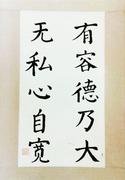 有容德乃大
无私心自宽